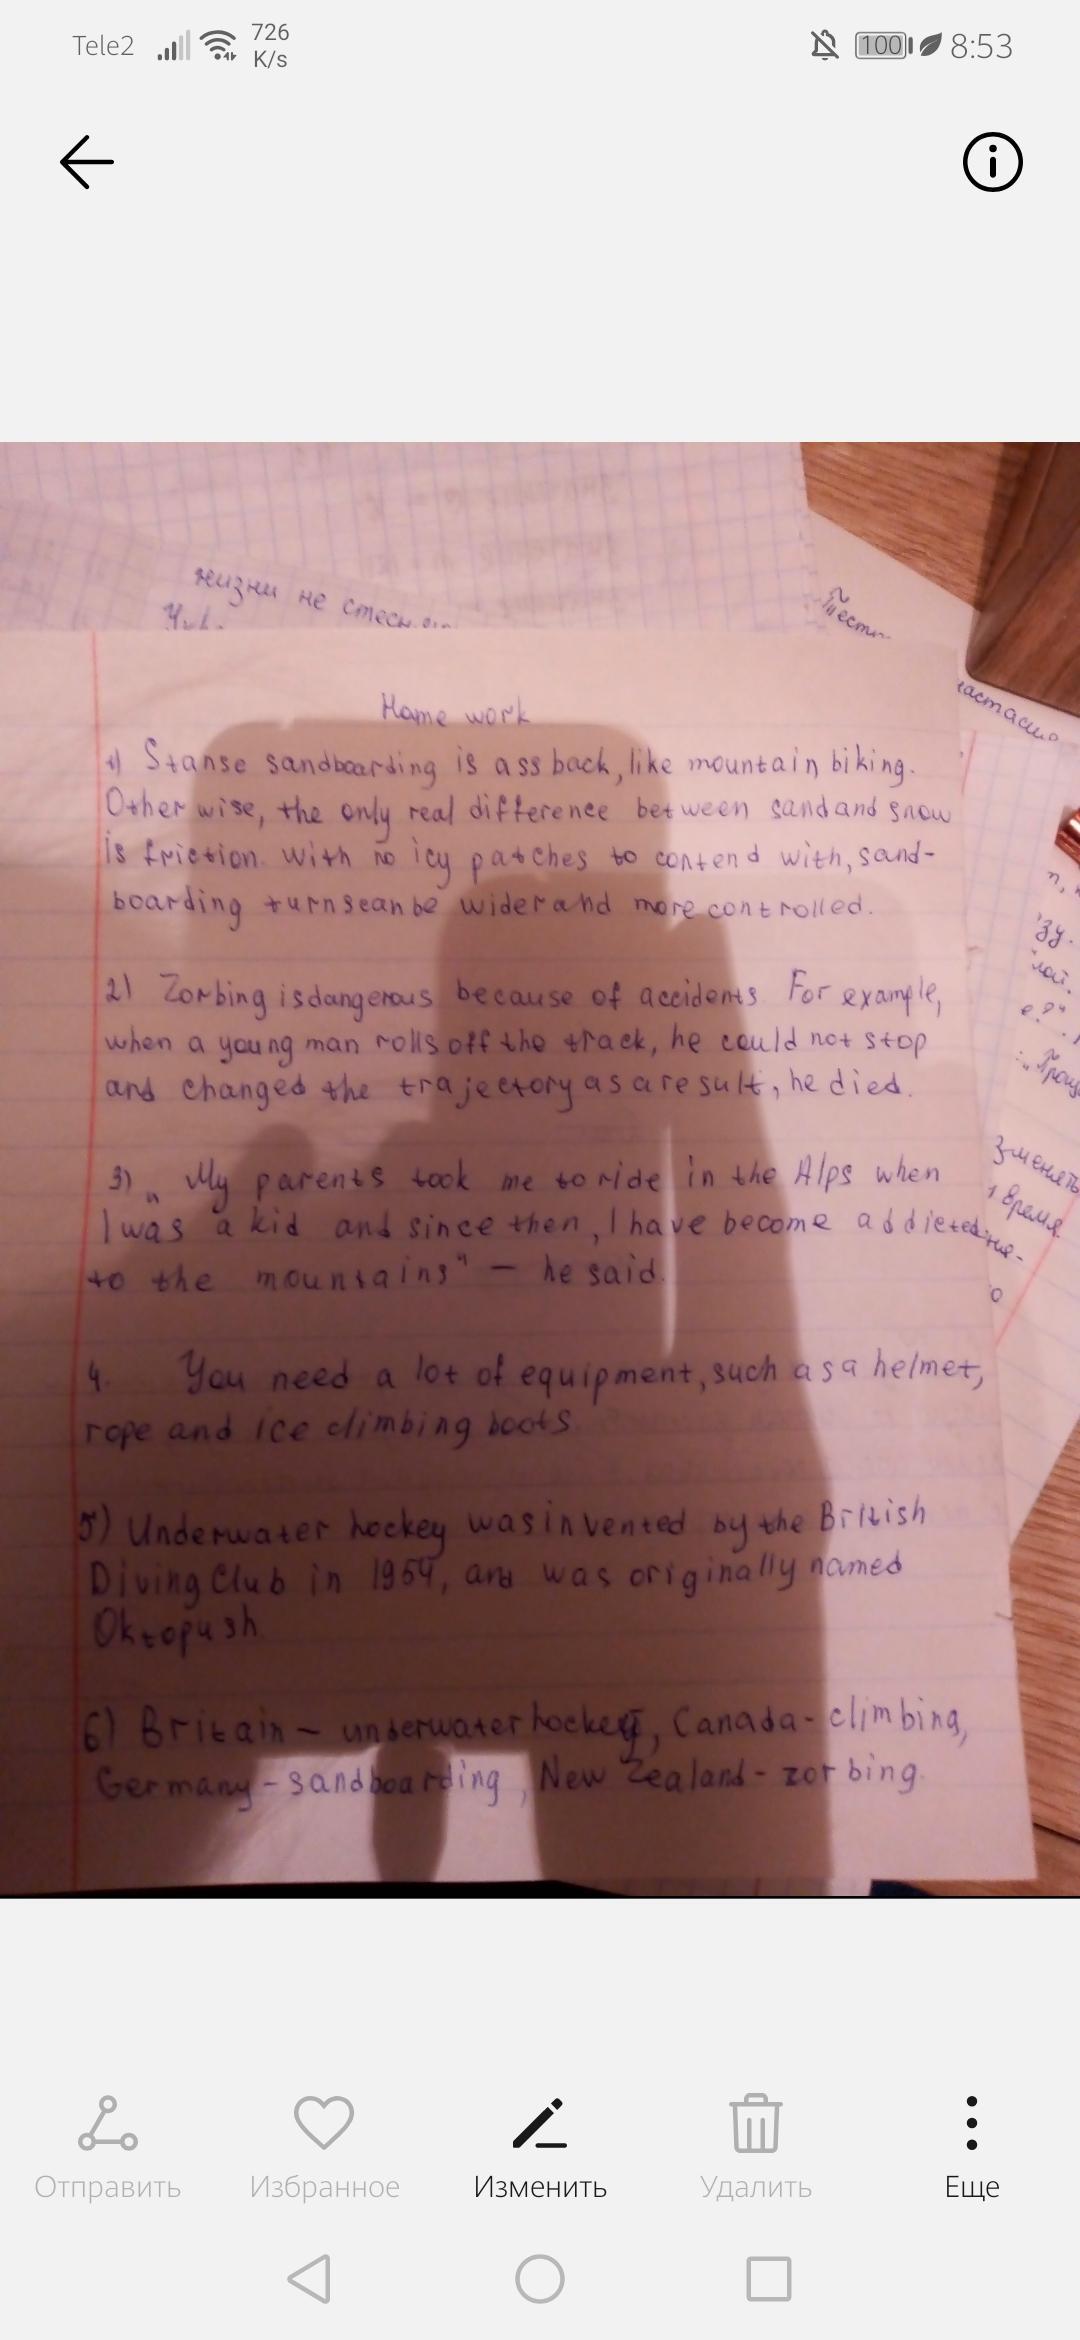 Tele2 726 K/s 100 8:53
жизни не
Home work
1) Stanse sandboarding is ass back, like mountain biking.
Other wise, the only real difference between sand and snow
is friction. With no icy patches to contend with, sand-
boarding turns can be wider and more controlled.
2) Zorbing is dangerous because of accidents. For example,
when a young man rolls off the track, he could not stop
and changed the trajectory as a result, he died.
3) „ My parents took me to ride in the Alps when
I was a kid and since then, I have become addicted
to the mountains" — he said.
4. You need a lot of equipment, such as a helmet,
rope and ice climbing boots.
5) Underwater hockey was invented by the British
Diving Club in 1954, and was originally named
Oktopush.
6) Britain – underwater hockey, Canada - climbing,
Germany - sandboarding, New Zealand - zorbing.
Зменять
время
Отправить Избранное Изменить Удалить Еще